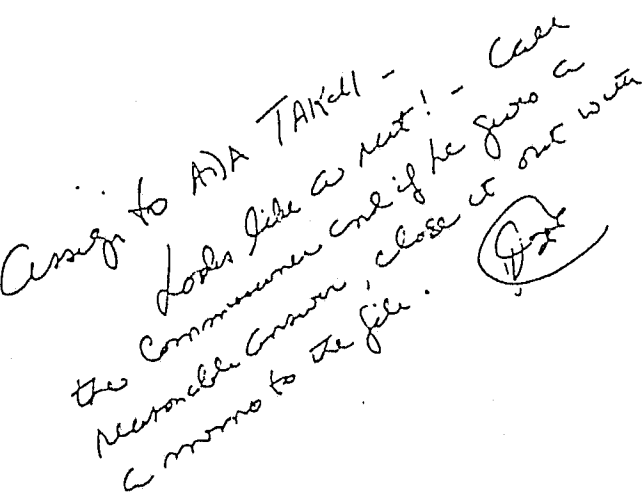 Assign to ADA TAKell -
Looks like a nut! - Call
the Commissioner and if he gives a
reasonable answer, close it out with
a memo to the file.